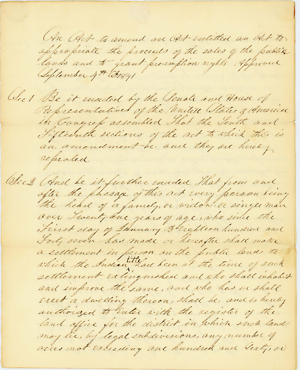 An Act to amend an Act entitled an Act to
appropriate the proceeds of the sales of the public
lands and to grant preemption rights. Approved
September 4th 1841
Sec 1 Be it enacted by the Senate and House of
Representatives of the United States of America
in Congress assembled That the Tenth and
Fifteenth sections of the act to which this is
an amendment be and they are hereby
repealed
Sec 2 And be it further enacted That from and
after the passage of this act every person being
the head of a family, or widow or single man
over Twenty one years of age, who since the
First day of January Eighteen hundred and
Forty seven has made or hereafter shall make
a settlement in person on the public lands to
which the Indian title had been at the time of such
settlement extinguished and who shall inhabit
and improve the same, and who has or shall
erect a dwelling thereon, shall be and is hereby
authorized to enter with the register of the
land office for the district in which such land
may lie, by legal subdivisions, any number of
acres not exceeding one hundred and Sixty, or